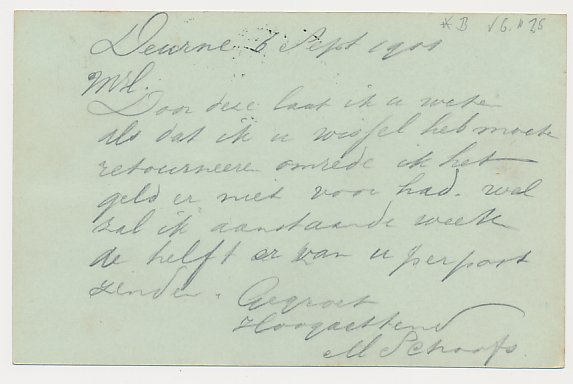 *B √6."25
Deurne 6 Sept 1900
MH.
Door deze laat ik u wete
als dat ik u wissel heb moete
retourneere omrede ik het
geld er niet voor had. wel
zal ik aanstaande week
de helft er van u per post
zende. Gegroet
Hoogachtend
M Schoofs.